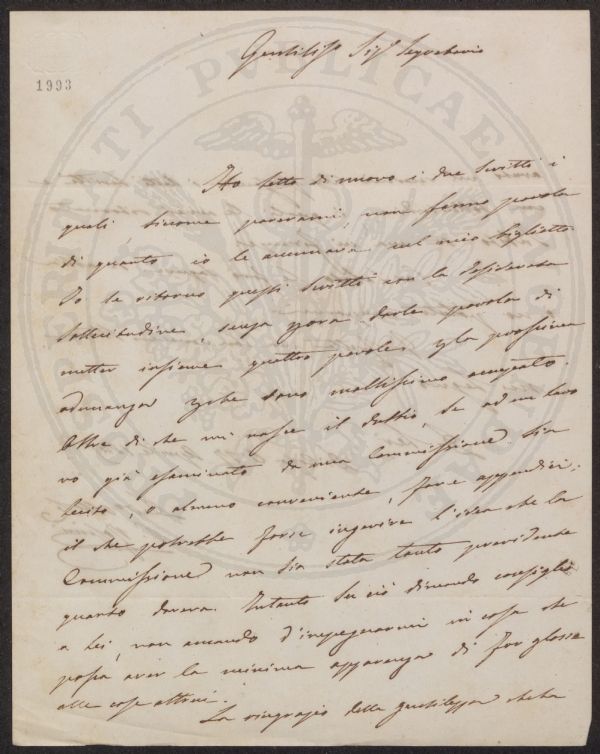 Gentiliss.º Sig.r Segretario
1993
PROSPERITATI PVBLICAE
Ho letto di nuovo i due scritti i
quali, siccome parevami, non fanno parola
di quanto io le accennava nel mio biglietto.
Io le ritorno questi scritti con la desiderata
sollecitudine, senza però darle parola di
metter insieme quattro parole p la prossima
adunanza perche sono moltissimo occupato.
Oltre di che mi nasce il dubbio, se ad un lavo
ro già esaminato da una Commissione sia
lecito, o almeno conveniente, fare appendici;
il che potrebbe forse ingerire l'idea che la
Commissione non sia stata tanto previdente
quanto doveva. Intanto su ciò dimando consiglio
a Lei, non amando d'impegnarmi in cosa che
possa aver la minima apparenza di far glosse
alle cose altrui.
La ringrazio della gentilezza che ha